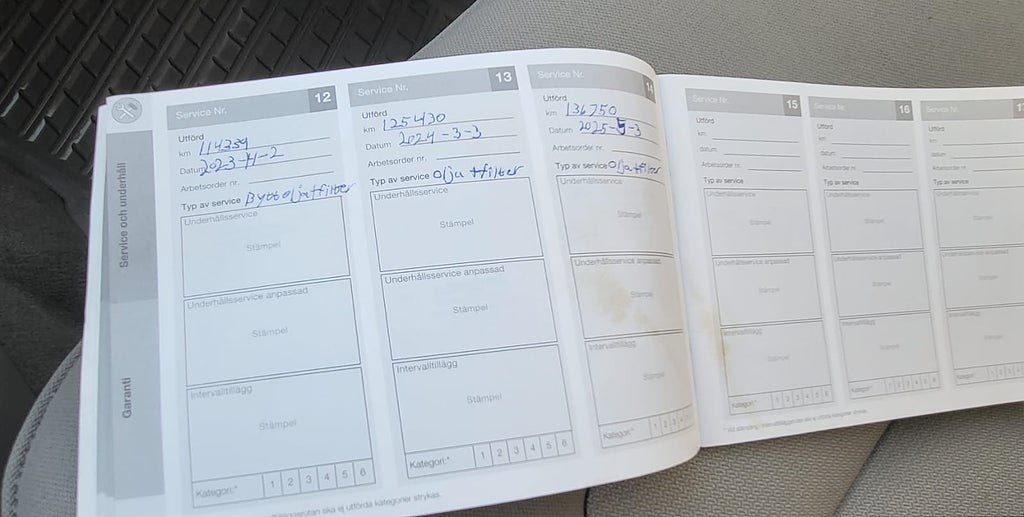 Service och underhåll
Garanti
Service Nr. 12
Utförd
km 114259
Datum 2023-4-2
Arbetsorder nr.
Typ av service Bytt olja+filter
Underhållsservice
Stämpel
Underhållsservice anpassad
Stämpel
Intervalltillägg
Stämpel
Kategori:* 1 2 3 4 5 6
Service Nr. 13
Utförd
km 125430
Datum 2024-3-3
Arbetsorder nr.
Typ av service Olja +filter
Underhållsservice
Stämpel
Underhållsservice anpassad
Stämpel
Intervalltillägg
Stämpel
Kategori:* 1 2 3 4 5 6
ska ej utförda kategorier strykas.
Service Nr. 14
Utförd
km 136750
Datum 2025- -3
Arbetsorder nr.
Typ av service Olja+filter
Underhållsservice
Stämpel
Underhållsservice anpassad
Stämpel
Intervalltillägg
Stämpel
Kategori:* 1 2 3
Service Nr. 15
Utförd
km
datum
Arbetsorder nr.
Typ av service
Underhållsservice
Stämpel
Underhållsservice anpassad
Stämpel
Intervalltillägg
Stämpel
Kategori:* 1 2 3 4 5 6
Service Nr. 16
Utförd
km
datum
Arbetsorder nr.
Typ av service
Underhållsservice
Stämpel
Underhållsservice anpassad
Stämpel
Intervalltillägg
Stämpel
Kategori:* 1 2 3 4 5 6
Service Nr.
Utförd
km
datum
Arbetsorder nr.
Typ av service
Underhållsservice
Stämpel
Underhållsservice
Stämpel
Intervalltillägg
Stämpel
Kategori:* 1 2 3
ska ej utförda kategorier strykas.